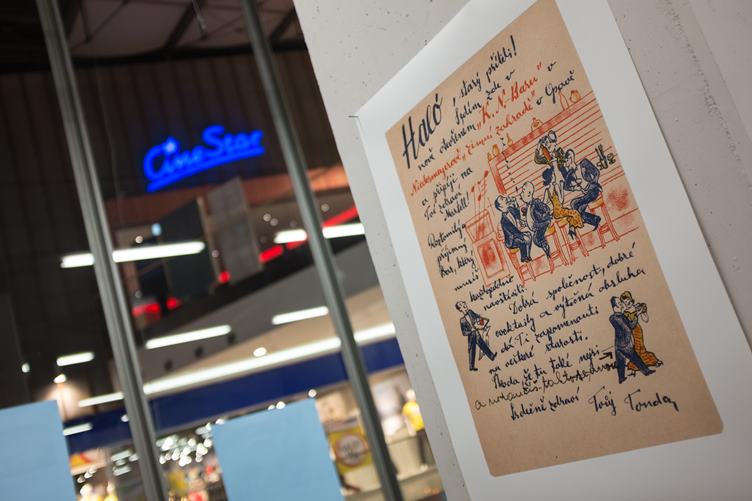 CineStar
Haló
, starý příteli!
Sedím zde v
nově otevřeném „K.N.-Baru" v
Niedermeyerově „zimní zahradě" v Opavě
a připíjí na
Tvé zdraví
Rozkošný
příjemný
Bar, který
musíš
navštívit!
Dobrá společnost, dobré
cocktaily a výtečná obsluha
dá Ti zapomenouti
na veškeré starosti.
Škoda že tu také nejsi
Srdečně zdraví Tvůj Tonda